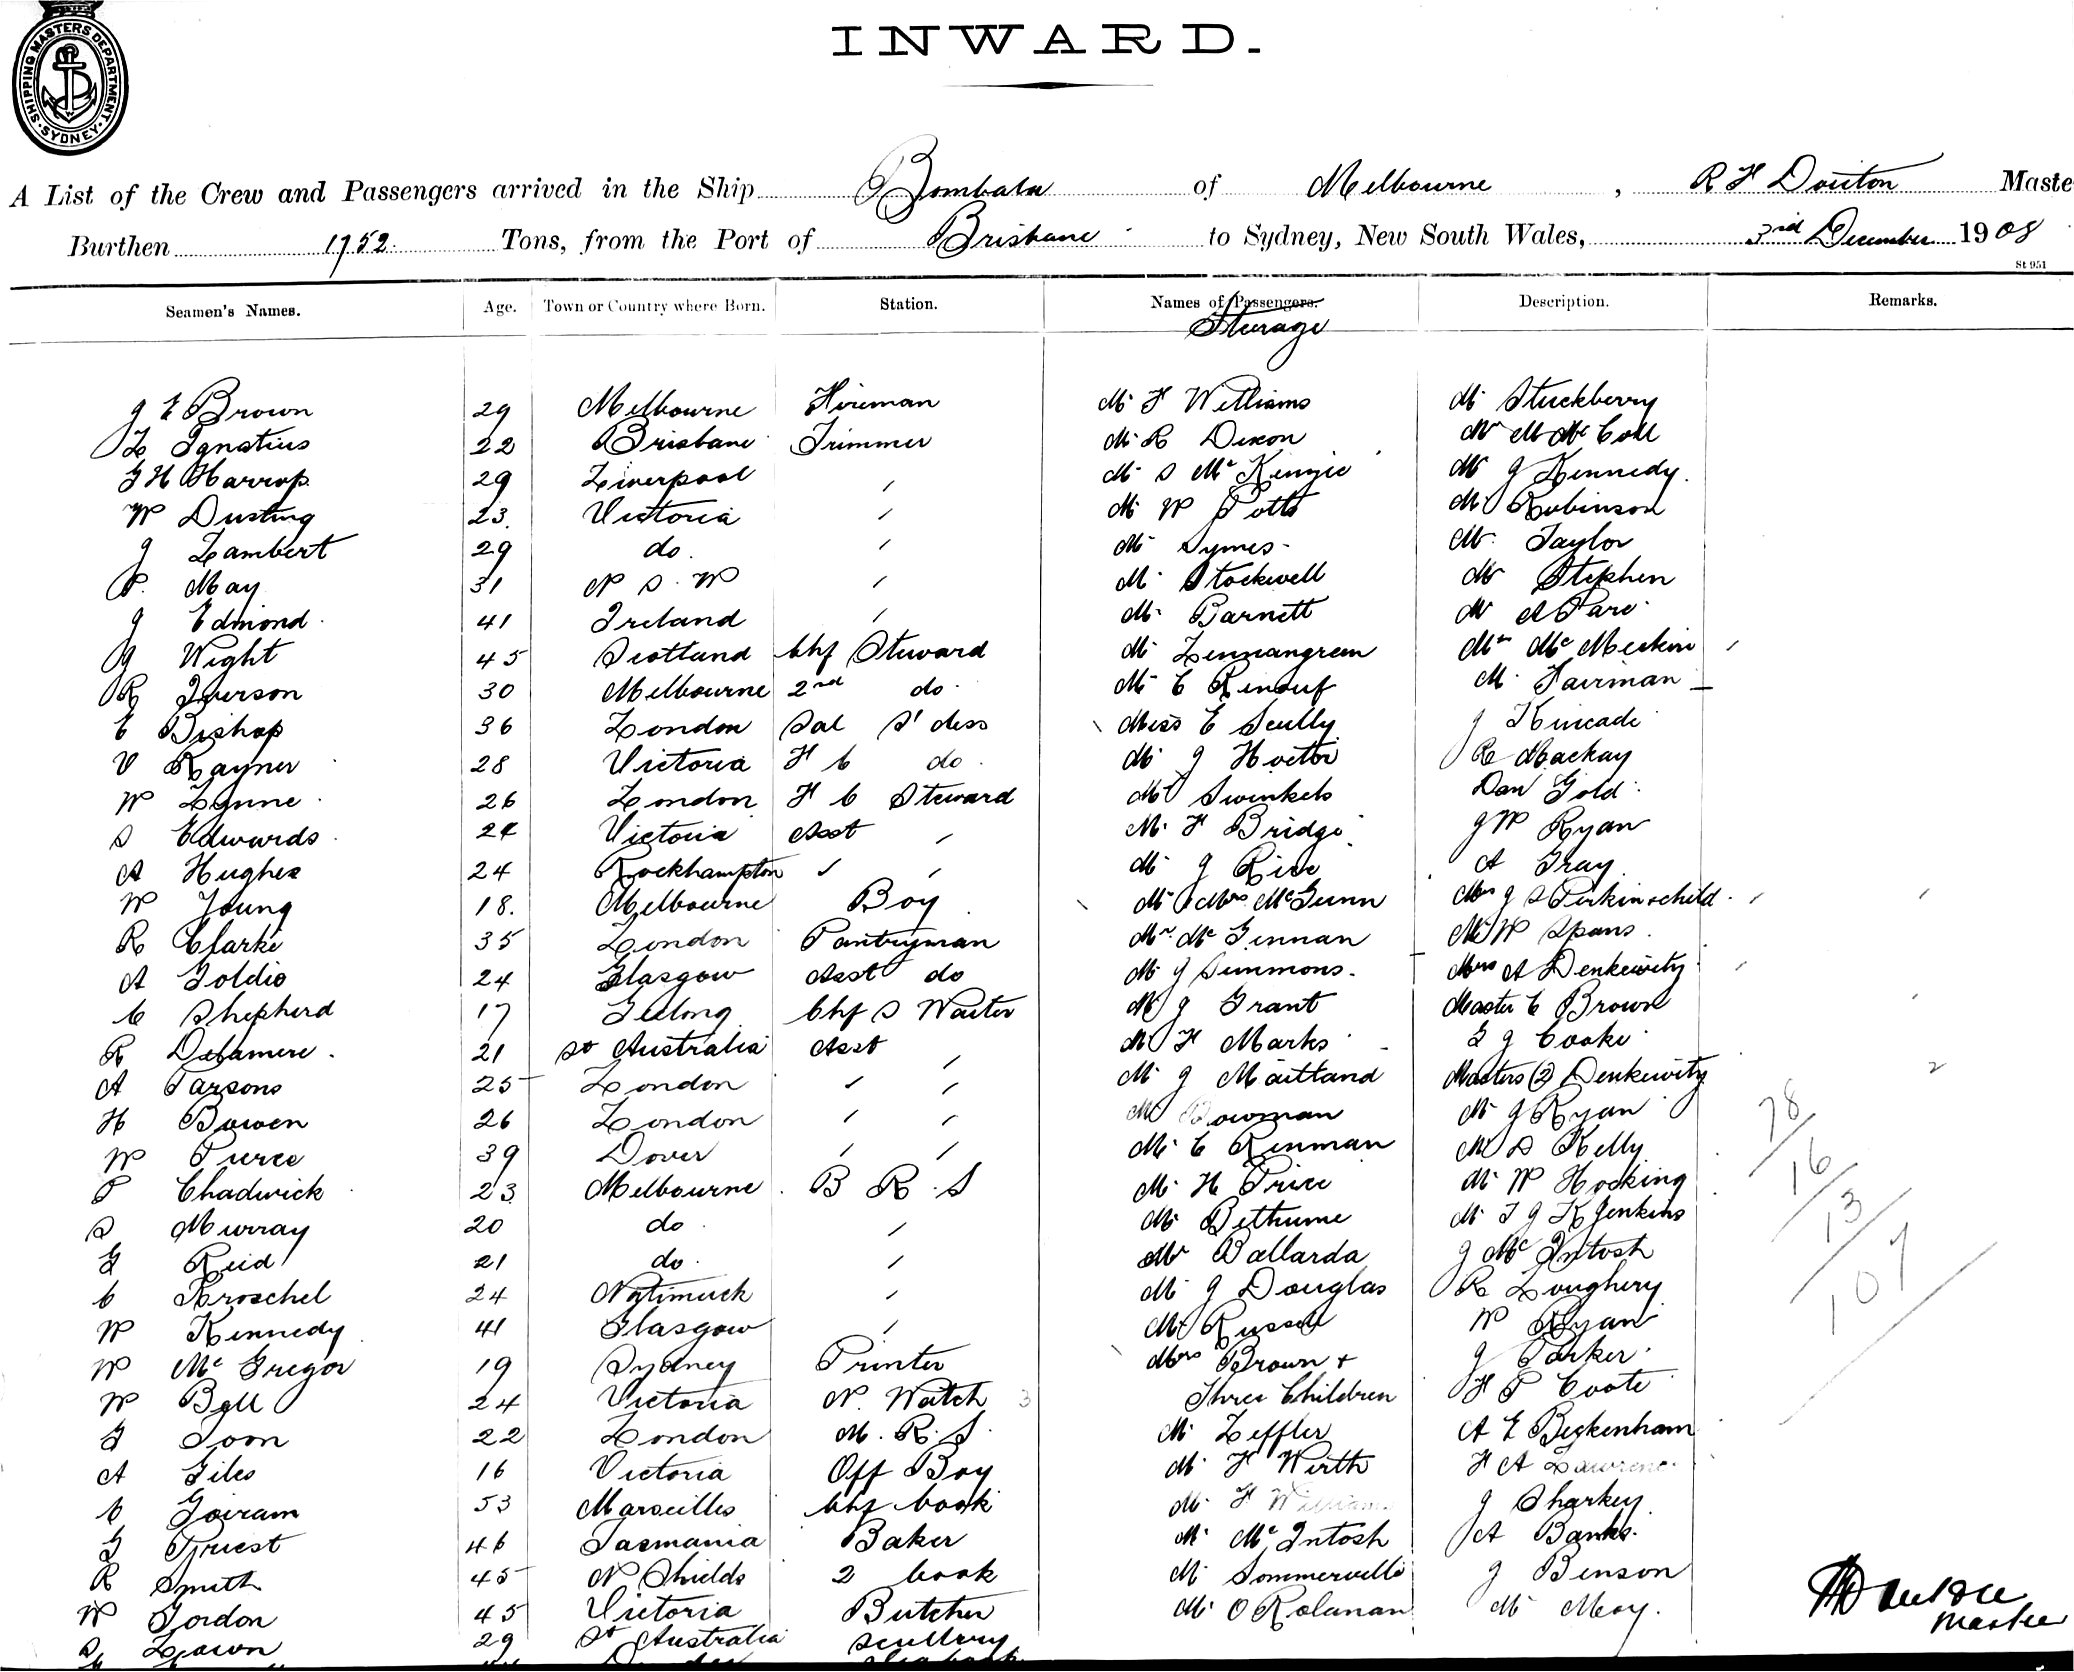 SHIPPING MASTERS DEPARTMENT. SYDNEY.
INWARD.
A List of the Crew and Passengers arrived in the Ship Bombala of Melbourne, R H Douton Maste
Burthen 1752 Tons, from the Port of Brisbane to Sydney, New South Wales, 3rd December 1908
St 951
Seamen's Names. Age. Town or Country where Born. Station. Names of Passengers. Description. Remarks.
Sturage
J E Brown 29 Melbourne Fireman Mr F Williams Mr Stuckberry
L Ignatius 22 Brisbane Trimmer Mr R Dixon Mr M McColl
G H Harrop 29 Liverpool " Mr S McKenzie Mr J Kennedy
W Dusting 23 Victoria " Mr W Potts Mr Robinson
J Lambert 29 do " Mr Symes Mr Taylor
P. May 31 N S. W " Mr Stockwell Mr Stephen
J Edmond 41 Ireland " Mr Barnett Mr A Pare
J Wight 45 Scotland Chf Steward Mr Lennangreen Mrs McMeekin
R Iverson 30 Melbourne 2nd do Mr C Renouf Mr Fairman
E Bishop 36 London Sal S'dess Miss E Scully J Kincade
V Rayner 28 Victoria F C do Mr J Hoctor R Mackay
W Lynne 26 London F C Steward Mr Swinkels Dan Gold
S Edwards 24 Victoria Asst " Mr F Bridge J W Ryan
A Hughes 24 Rockhampton " " Mr J Rice A Gray
W Young 18. Melbourne Boy Mr & Mrs McGunn Mrs J S Perkin + child
R Clarke 35 London Pantryman Mr McGennan Mr W Spans
A Goldie 24 Glasgow Asst do Mr J Simmons Mrs A Denkewitz
C Shepherd 17 Geelong Chf S Waiter Mr J Grant Master C Brown
R Delamere 21 Sth Australia Asst " Mr F Marks G J Cooke
A Parsons 25 London " " Mr J Maitland Masters (2) Denkewitz 2
H Bowen 26 London " " Mr Bowman Mr J Ryan 78
W Pierce 39 Dover " " Mr C Renman Mr S Kelly
P Chadwick 23 Melbourne B R. S Mr H Price Mr W Hocking 16
S Murray 20 do " Mr Bethune Mr T J K Jenkins 13
G Reid 21 do " Mr Ballarda J McIntosh
C Kroschel 24 Natimuck " Mr J Douglas R Loughery 107
W Kennedy 41 Glasgow " Mr Russell W Ryan
W McGregor 19 Sydney Printer Mrs Brown + J Parker
W Bell 24 Victoria N. Watch 3 Three Children F P Coote
G Toon 22 London M. R. S. Mr Leffler A E Beckenham
A Giles 16 Victoria Off Boy Mr F Wirth F A Lawrence
C Goiram 53 Marseilles Chf Cook Mr F Williams J Sharkey
G Priest 46 Tasmania Baker Mr McIntosh A Banks
R Smith 45 N Shields 2 Cook Mr Sommerville J Benson
W Gordon 45 Victoria Butcher Mr O Rolanan Mr Moy.
Lawn 29 Sth Australia Scullery
Master